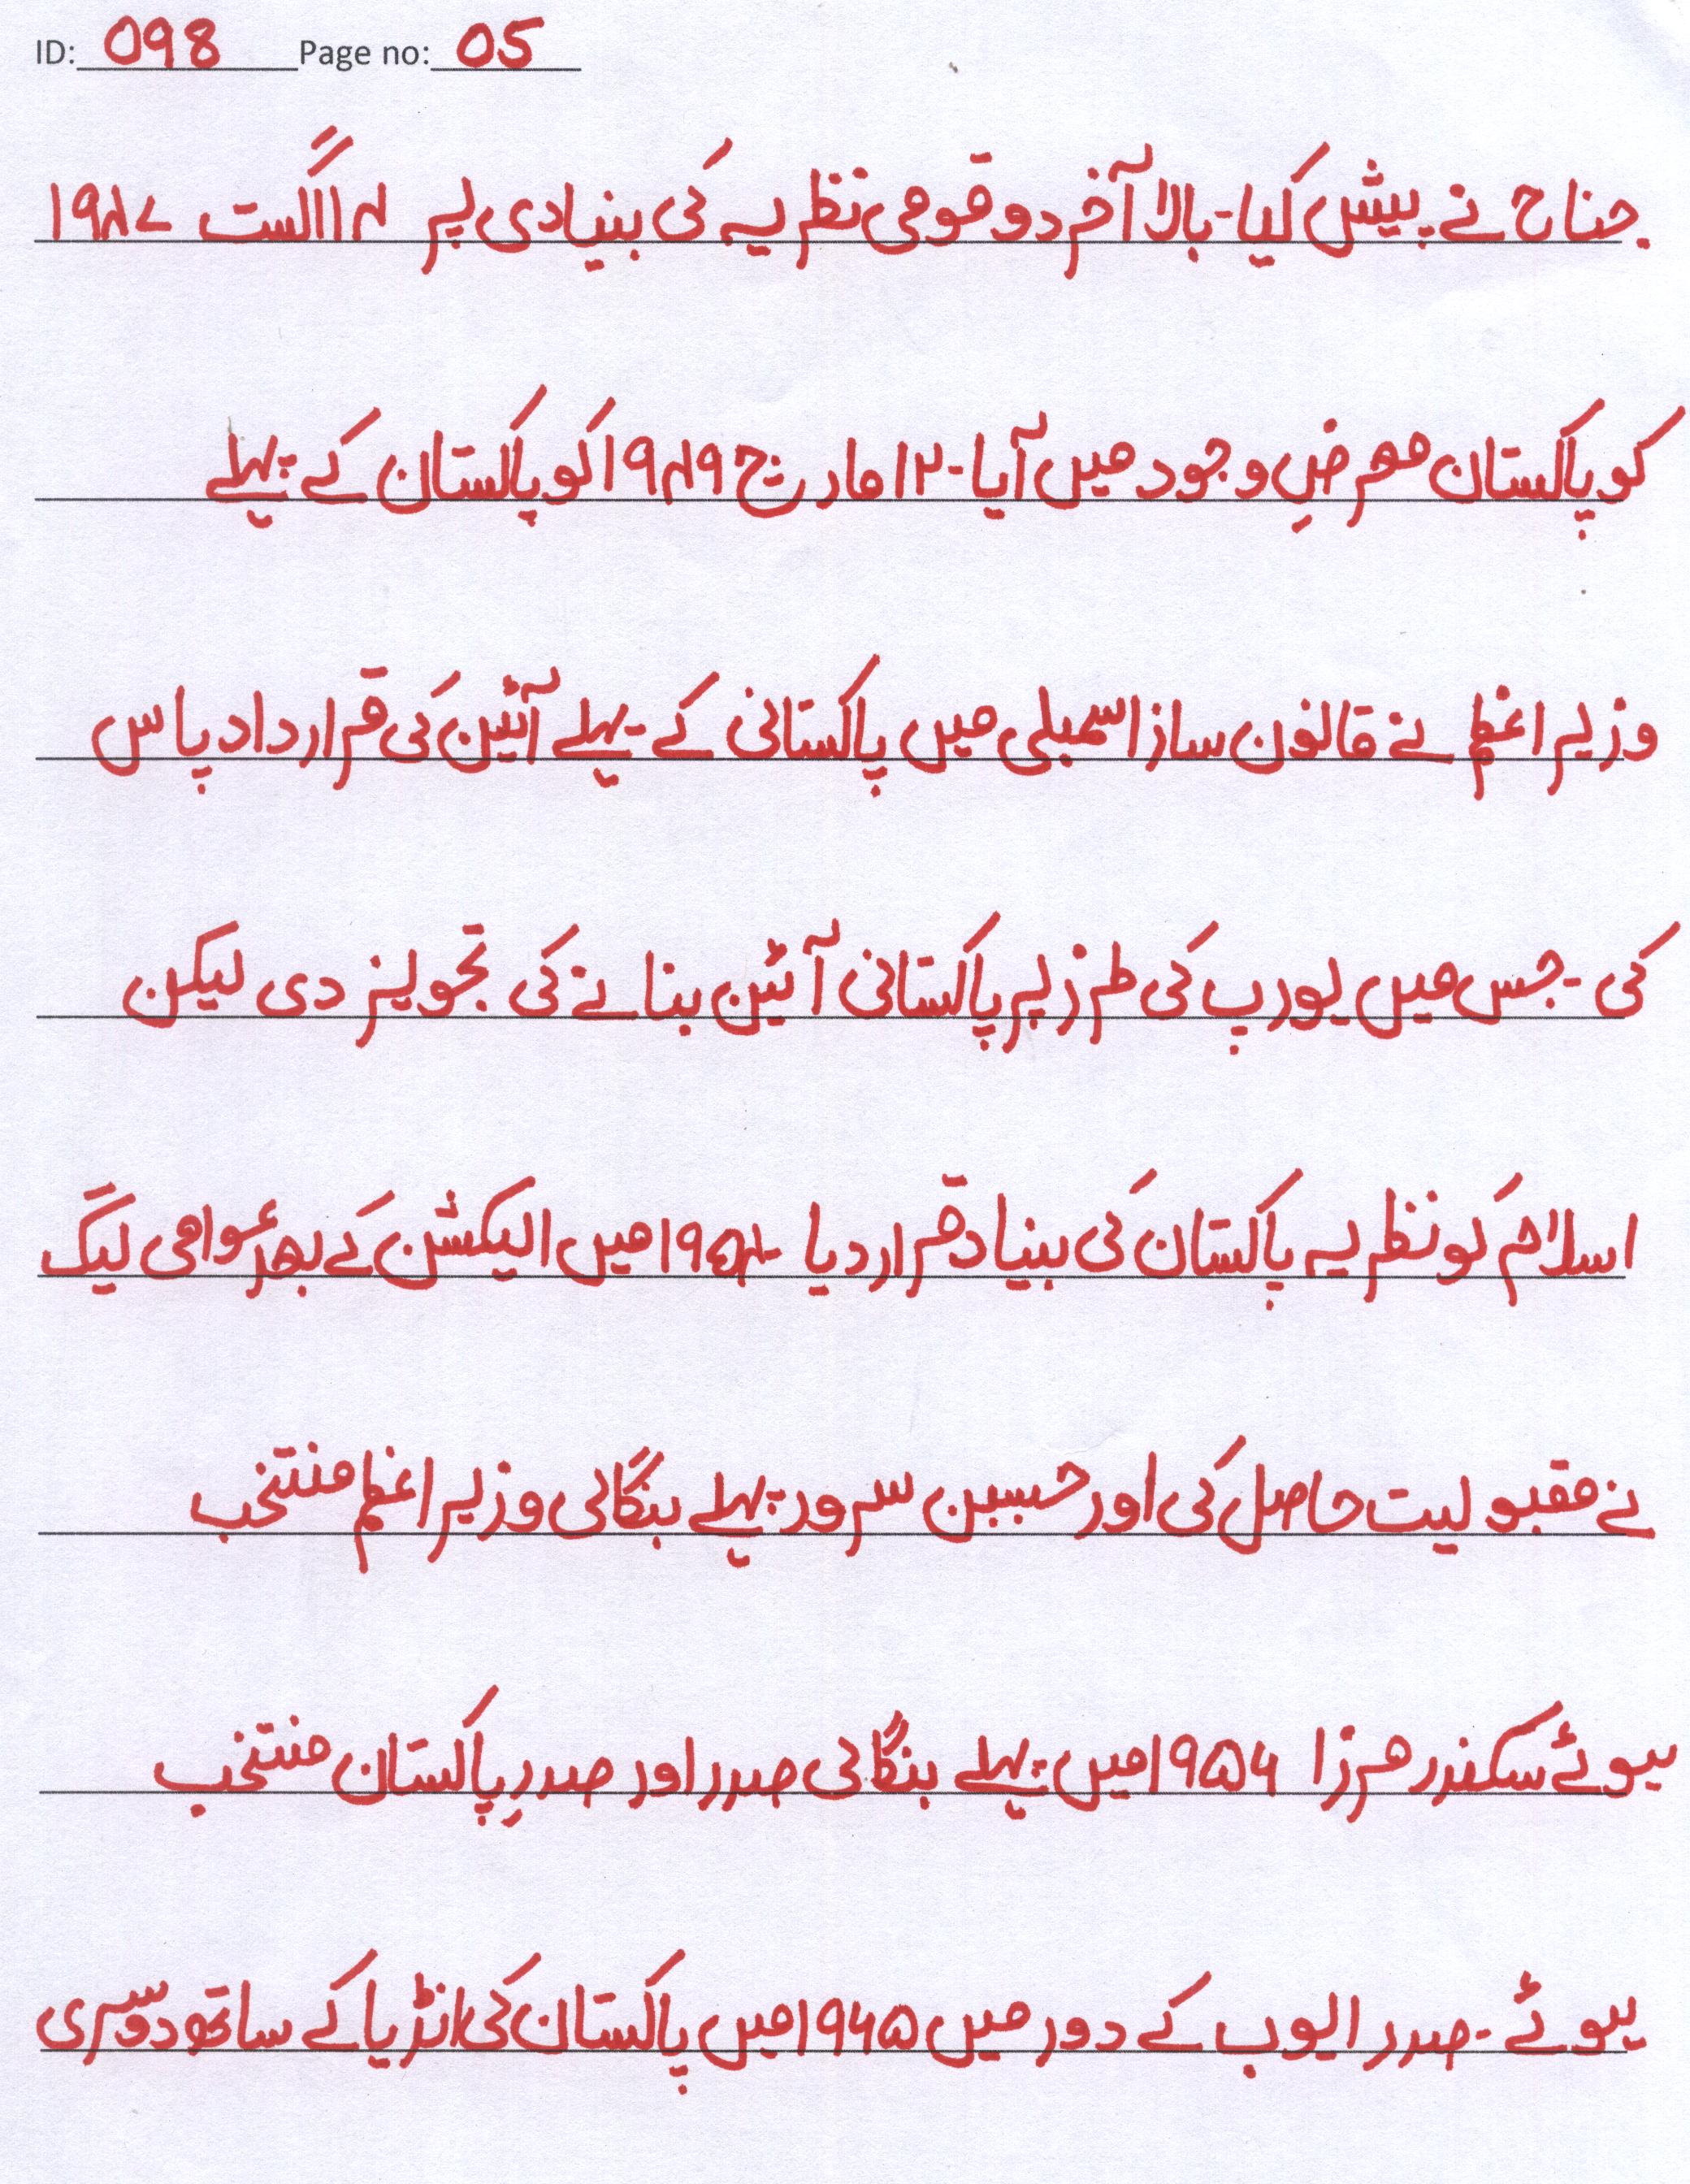 ID: 098 Page no: 05
جناح نے پیش کیا۔ بالاآخر دو قومی نظریہ کی بنیادی پر ۱۴ اگست ۱۹۴۷
کو پاکستان معرضِ وجود میں آیا۔ ۱۲ مارچ ۱۹۴۹ کو پاکستان کے پہلے
وزیراعظم نے قانون ساز اسمبلی میں پاکستانی کے پہلے آئین کی قرارداد پاس
کی۔ جس میں یورپ کی طرز پر پاکستانی آئین بنانے کی تجویز دی لیکن
اسلام کو نظریہ پاکستان کی بنیاد قرار دیا۔ ۱۹۵۴ میں الیکشن کے بعد عوامی لیگ
نے مقبولیت حاصل کی اور حسین سرور پہلے بنگالی وزیراعظم منتخب
ہوئے سکندر مرزا ۱۹۵۶ میں پہلے بنگالی صدر اور صدرِ پاکستان منتخب
ہوئے۔ صدر ایوب کے دور میں ۱۹۶۵ میں پاکستان کی انڈیا کے ساتھ دوسری